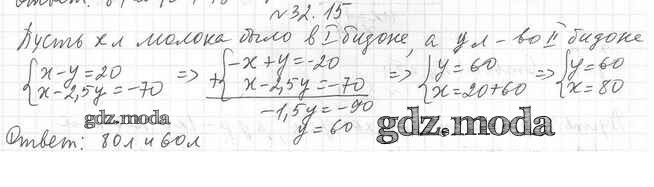 №32.15
Пусть x л молока было в I бидоне, а y л - во II бидоне
{x-y=20 => +{-x+y=-20 => {y=60 => {y=60
{x-2,5y=-70 {x-2,5y=-70 {x=20+60 {x=80
-1,5y=-90
y=60
gdz.moda
gdz.moda
Ответ: 80л и 60л